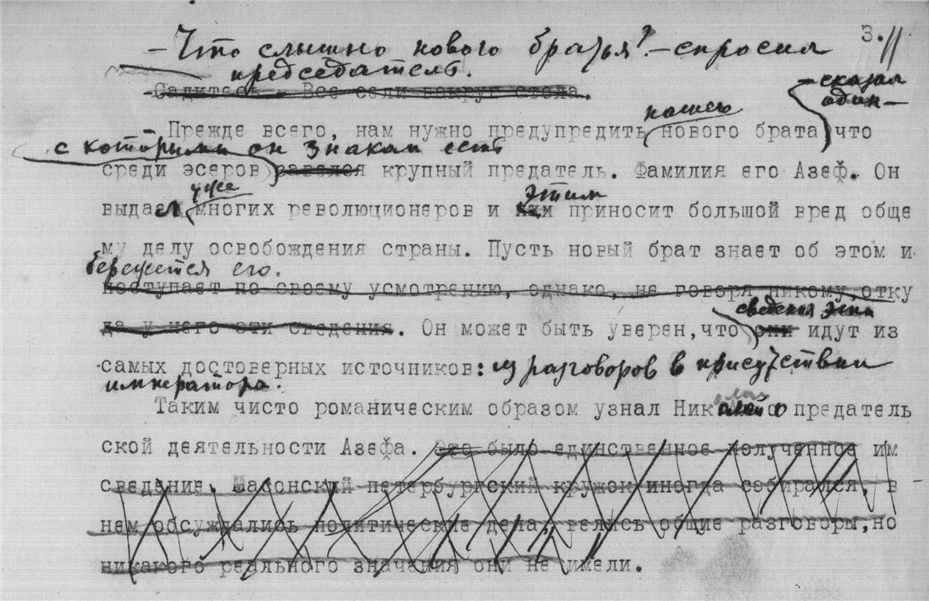 3.
— Что слышно нового братья? — спросил
председатель.
Садитесь. Все сели вокруг стола.
— сказал
один —
нашего
Прежде всего, нам нужно предупредить нового брата что
с которыми он знаком есть
среди эсеров завелся крупный предатель. Фамилия его Азеф. Он
уже этим
выдал многих революционеров и им приносит большой вред обще
му делу освобождения страны. Пусть новый брат знает об этом и
бережется его.
поступает по своему усмотрению, однако, не говоря никому, отку
сведения эти
да у него эти сведения. Он может быть уверен, что они идут из
самых достоверных источников: из разговоров в присутствии
императора.
Таким чисто романическим образом узнал Николай о предатель
ской деятельности Азефа. Это было единственное полученное им
сведение. Масонский петербургский кружок иногда собирался, в
нем обсуждались политические дела, велись общие разговоры, но
никакого реального значения они не имели.